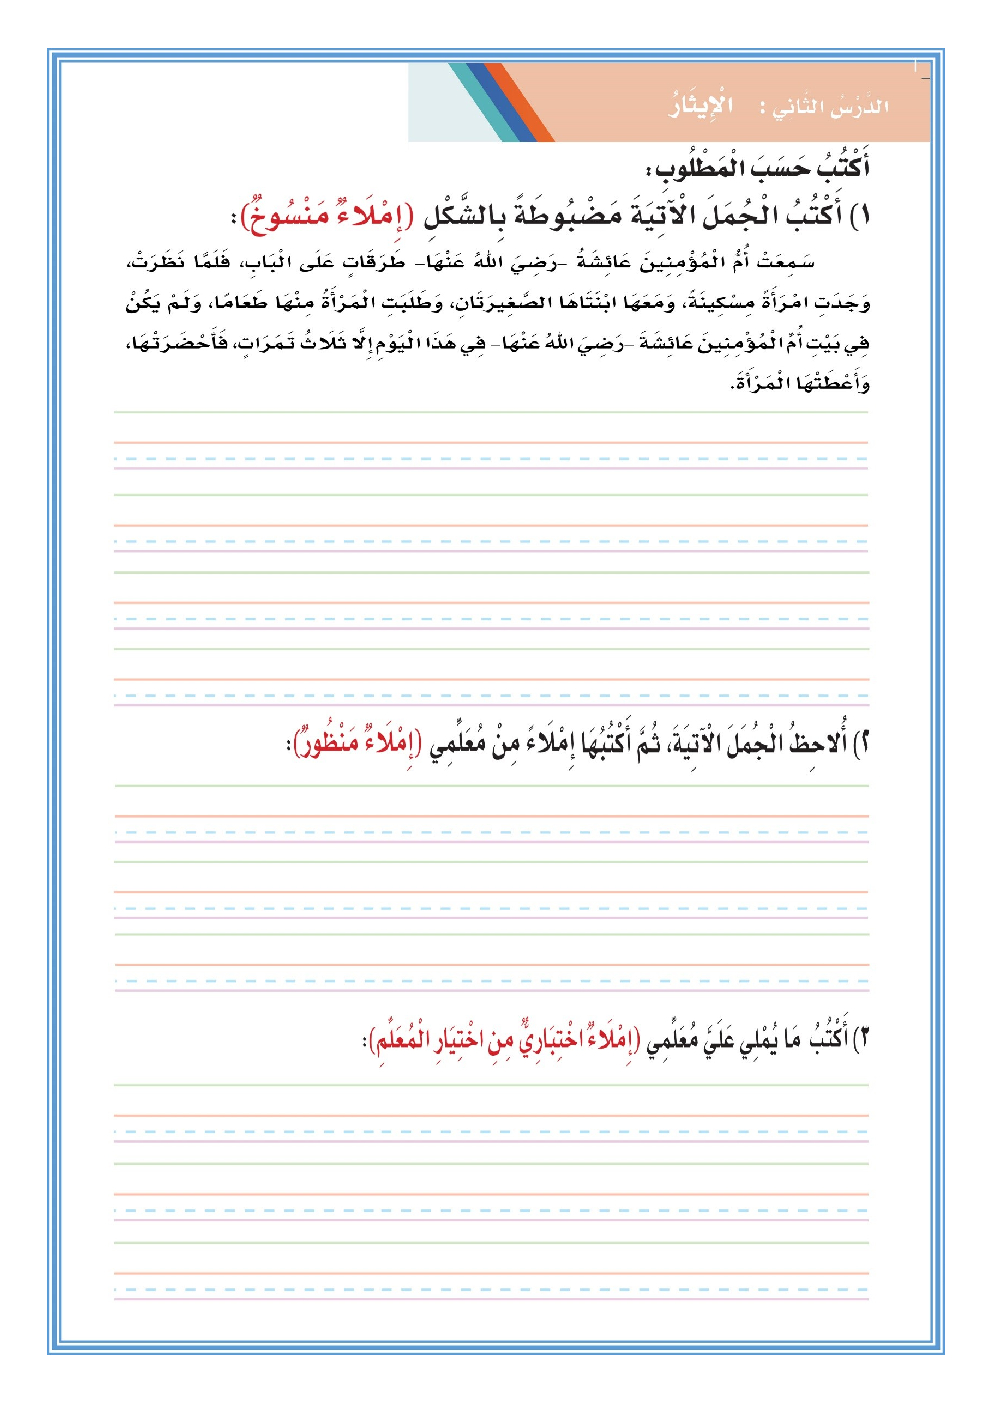 الدَّرْسُ الثَّانِي : الْإِيثَارُ
أَكْتُبُ حَسَبَ الْمَطْلُوبِ:
١) أَكْتُبُ الْجُمَلَ الْآتِيَةَ مَضْبُوطَةً بِالشَّكْلِ (إِمْلَاءٌ مَنْسُوخٌ):
سَمِعَتْ أُمُّ الْمُؤْمِنِينَ عَائِشَةُ -رَضِيَ اللهُ عَنْهَا- طَرَقَاتٍ عَلَى الْبَابِ، فَلَمَّا نَظَرَتْ،
وَجَدَتِ امْرَأَةً مِسْكِينَةً، وَمَعَهَا ابْنَتَاهَا الصَّغِيرَتَانِ، وَطَلَبَتِ الْمَرْأَةُ مِنْهَا طَعَامًا، وَلَمْ يَكُنْ
فِي بَيْتِ أُمِّ الْمُؤْمِنِينَ عَائِشَةَ -رَضِيَ اللهُ عَنْهَا- فِي هَذَا الْيَوْمِ إِلَّا ثَلَاثُ تَمَرَاتٍ، فَأَحْضَرَتْهَا،
وَأَعْطَتْهَا الْمَرْأَةَ.
٢) أُلاحِظُ الْجُمَلَ الْآتِيَةَ، ثُمَّ أَكْتُبُهَا إِمْلَاءً مِنْ مُعَلِّمِي (إِمْلَاءٌ مَنْظُورٌ):
٣) أَكْتُبُ مَا يُمْلِي عَلَيَّ مُعَلِّمِي (إِمْلَاءٌ اخْتِبَارِيٌّ مِنِ اخْتِيَارِ الْمُعَلِّمِ):